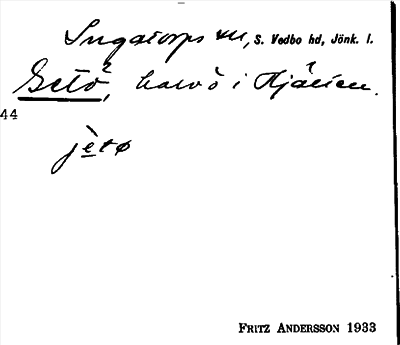 Ingatorps sn, S. Vedbo hd, Jönk. l.
Getö, halvö i Hjälen.
44
jètø
FRITZ ANDERSSON 1933